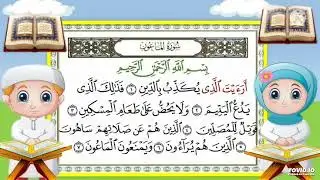 سُورَةُ المَاعُونِ
بِسْمِ اللَّهِ الرَّحْمَٰنِ الرَّحِيمِ
أَرَءَيْتَ الَّذِي يُكَذِّبُ بِالدِّينِ ١ فَذَٰلِكَ الَّذِي
يَدُعُّ الْيَتِيمَ ٢ وَلَا يَحُضُّ عَلَىٰ طَعَامِ الْمِسْكِينِ ٣
فَوَيْلٌ لِّلْمُصَلِّينَ ٤ الَّذِينَ هُمْ عَن صَلَاتِهِمْ سَاهُونَ
٥ الَّذِينَ هُمْ يُرَاءُونَ ٦ وَيَمْنَعُونَ الْمَاعُونَ ٧
VIVOVIDEO